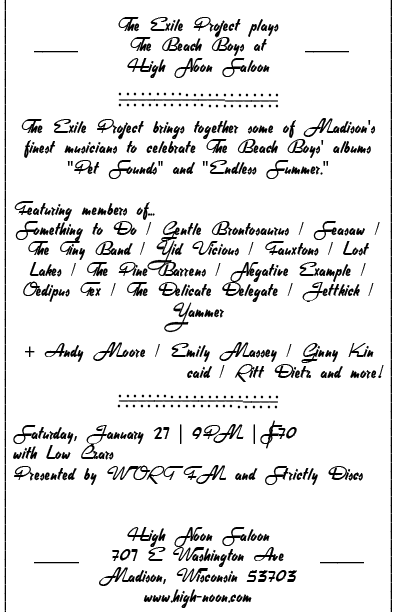 The Exile Project plays
The Beach Boys at
High Noon Saloon
The Exile Project brings together some of Madison's
finest musicians to celebrate The Beach Boys' albums
"Pet Sounds" and "Endless Summer."
Featuring members of...
Something to Do / Gentle Brontosaurus / Seasaw /
The Tiny Band / Yid Vicious / Fauxtons / Lost
Lakes / The Pine Barrens / Negative Example /
Oedipus Tex / The Delicate Delegate / /
Yammer
+ Andy Moore / Emily Massey / Ginny Kin
caid / Ritt Dietz and more!
Saturday, January 21 | 9PM | $10
with Low Czars
Presented by WORT FM and Strictly Discs
High Noon Saloon
701 E Washington Ave
Madison, Wisconsin 53703
www.high-noon.com